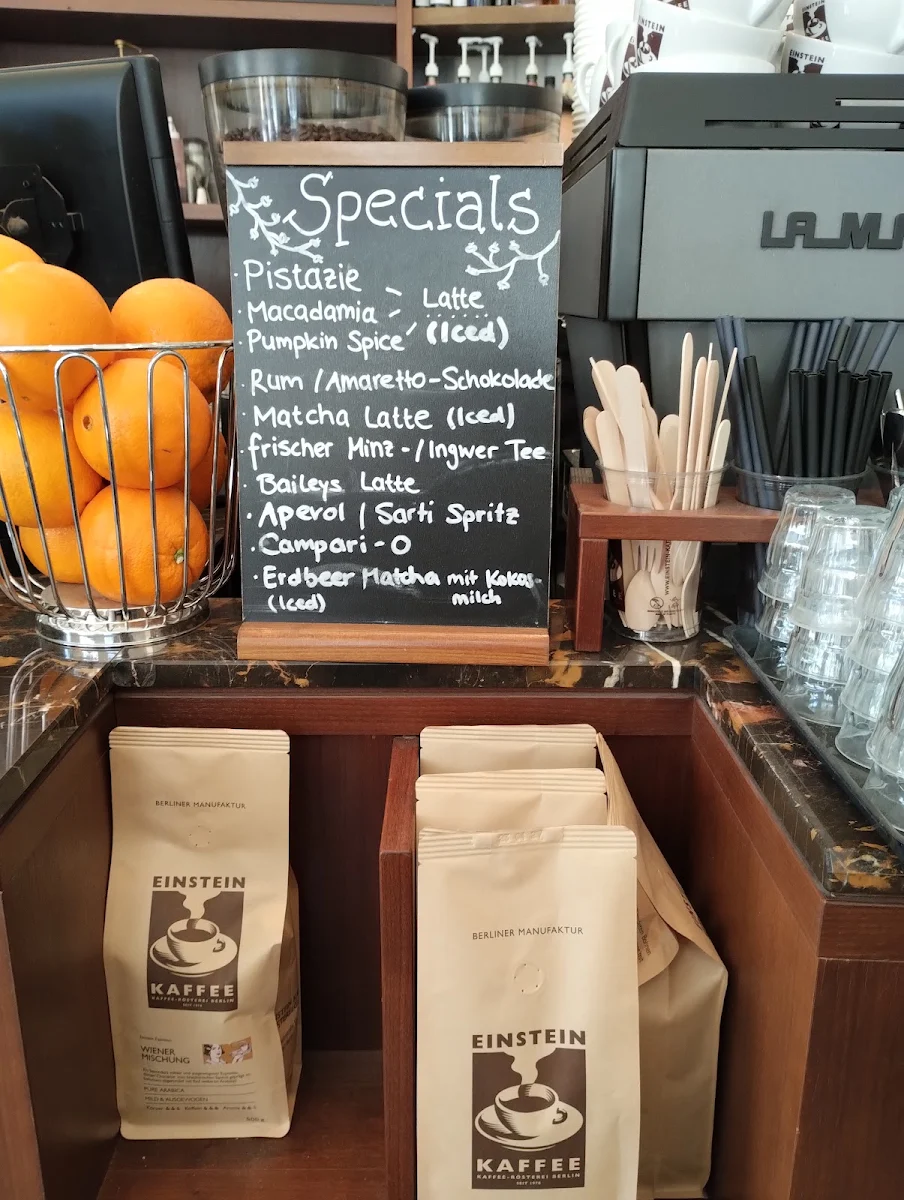 EINSTEIN
EINSTEIN
LA MA
Specials
· Pistazie
· Macadamia
· Pumpkin Spice
Latte
(Iced)
· Rum / Amaretto - Schokolade
· Matcha Latte (Iced)
· frischer Minz - / Ingwer Tee
· Baileys Latte
· Aperol / Sarti Spritz
· Campari - O
· Erdbeer Matcha mit Kokos-
(Iced) milch
BERLINER MANUFAKTUR
EINSTEIN
KAFFEE
KAFFEE-RÖSTEREI BERLIN
SEIT 1978
WIENER
MISCHUNG
PURE ARABICA
MILD & AUSGEWOGEN
500 g
BERLINER MANUFAKTUR
EINSTEIN
KAFFEE
KAFFEE-RÖSTEREI BERLIN
SEIT 1978